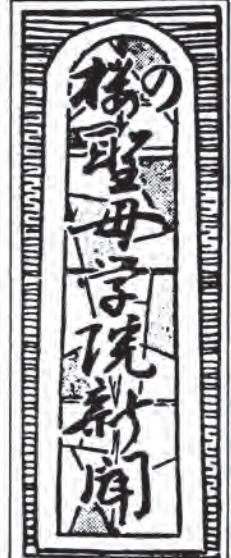 桜の聖母学院新聞